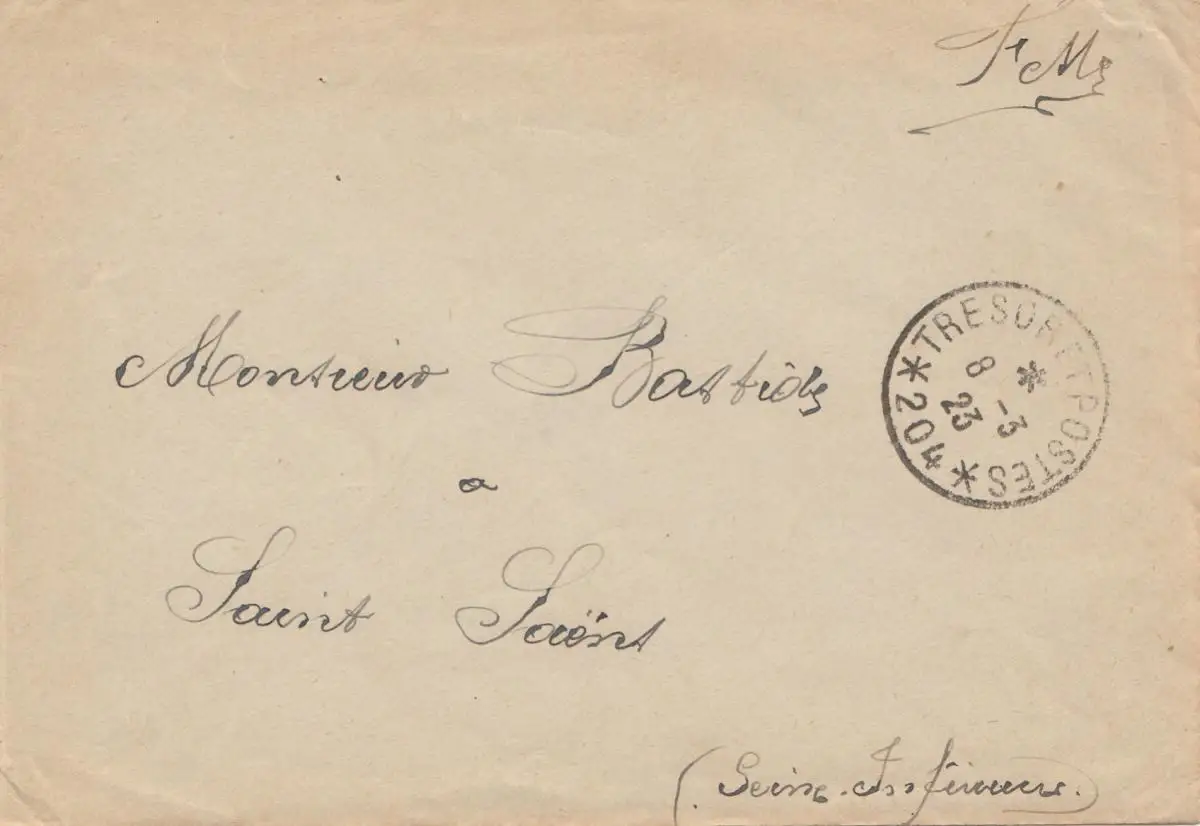 F M
Monsieur Bastide
*TRESOR ET POSTES*
*
8 -3
23
*204*
a
Saint Saënt
(Seine-Inférieure.)